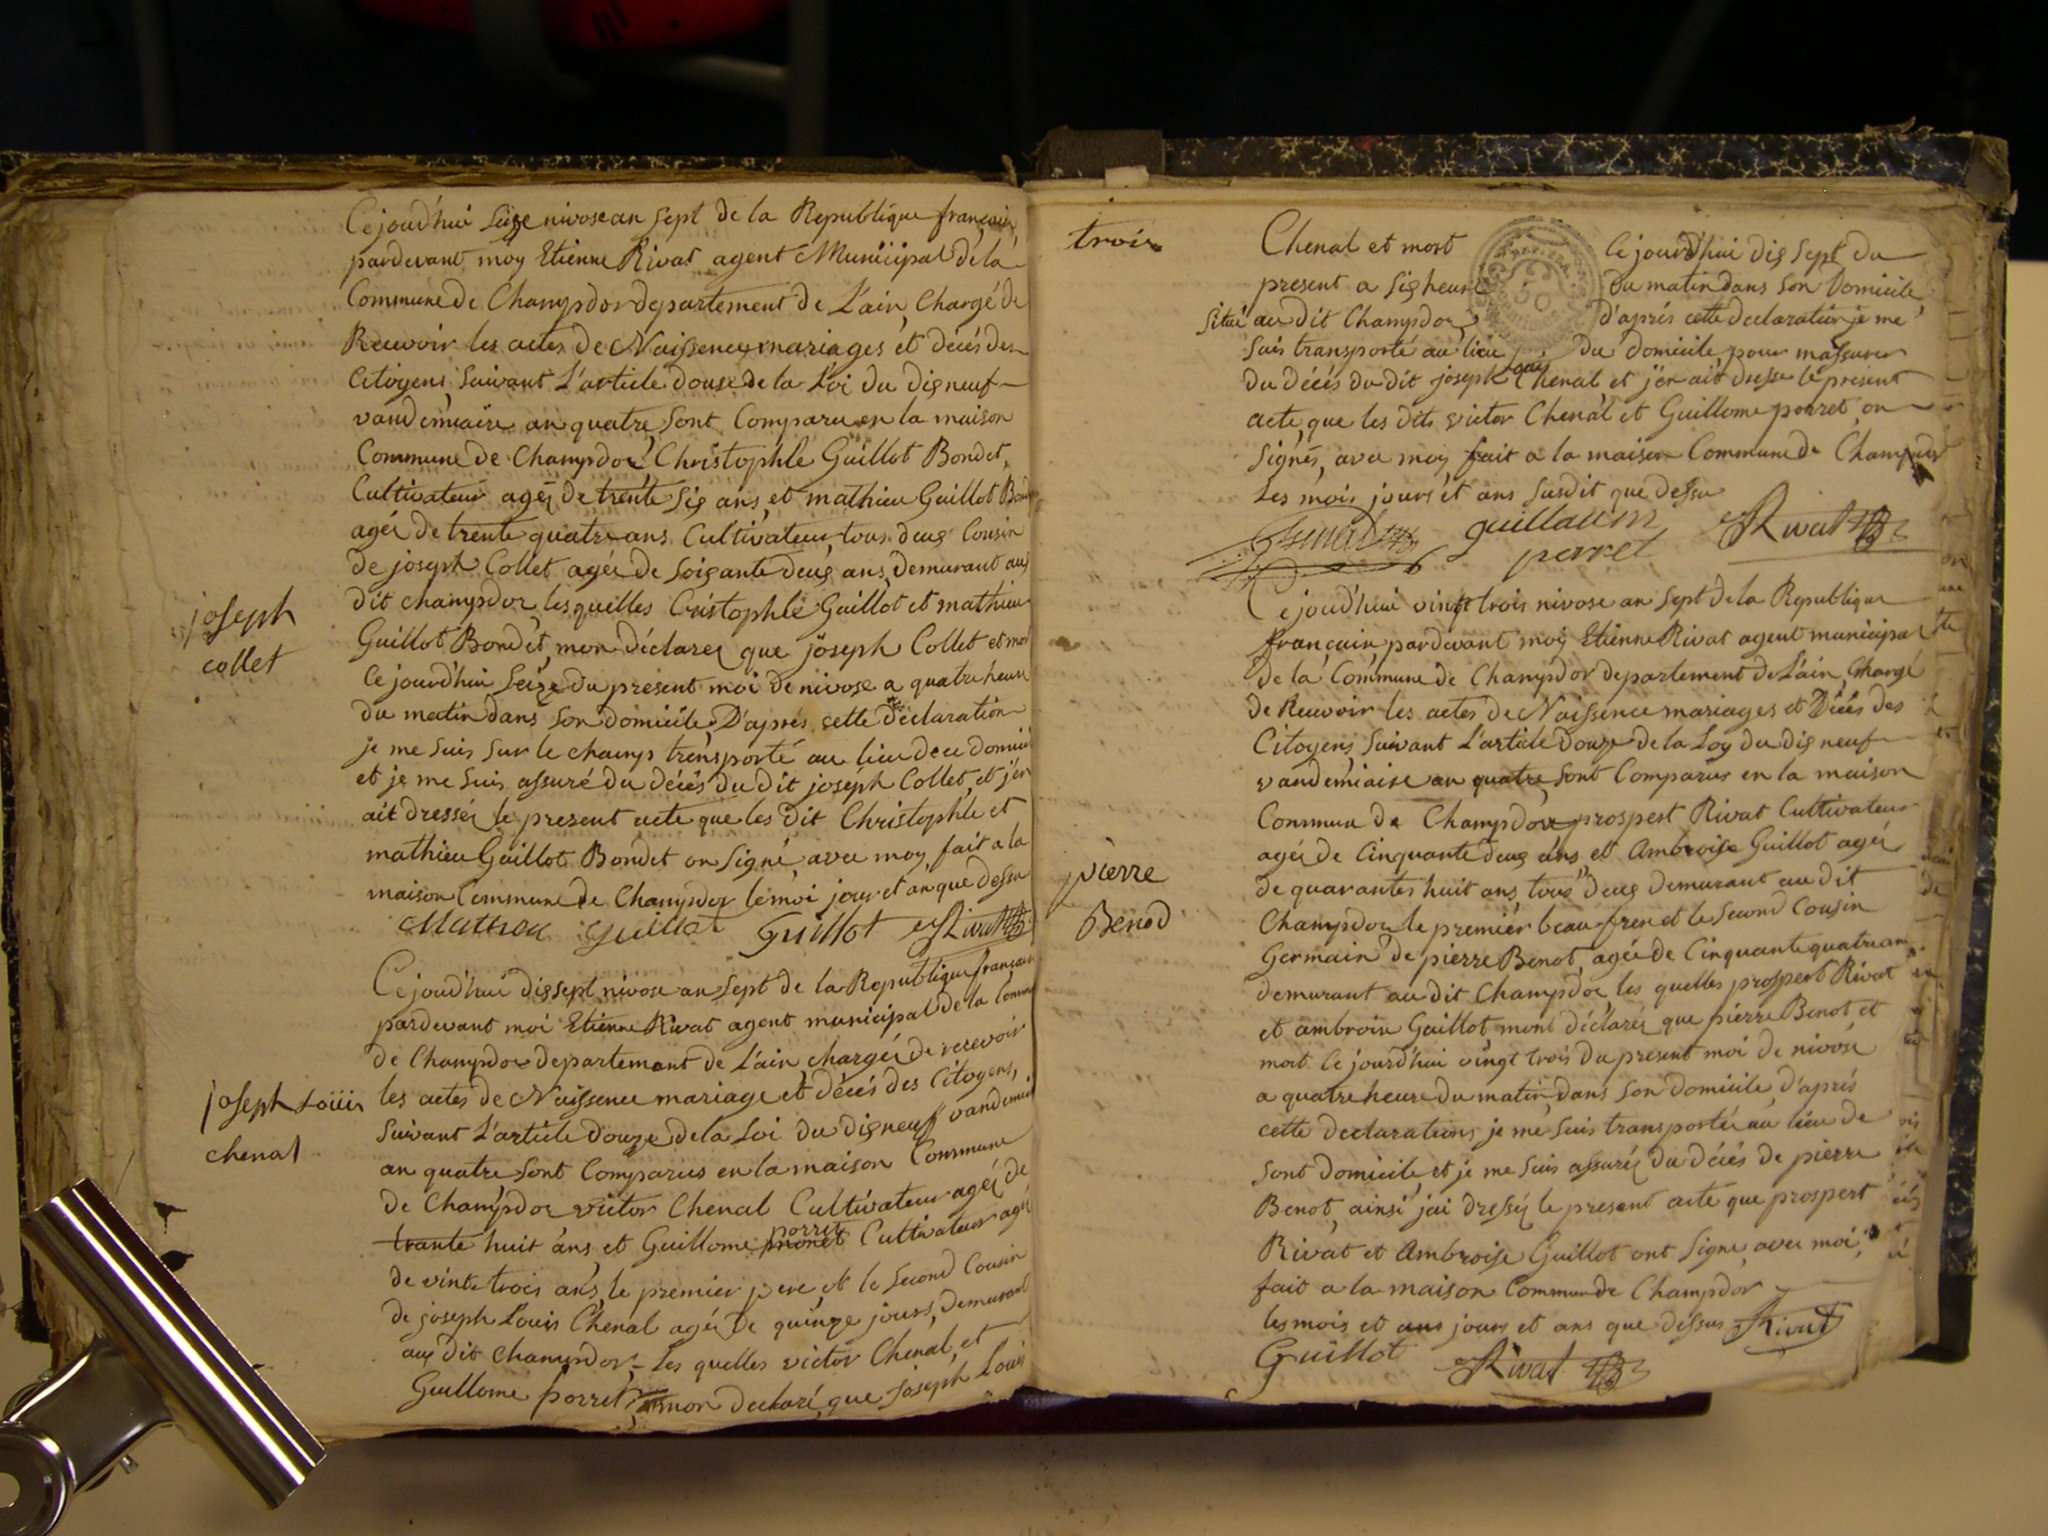 Cejourd'hui Seize nivose an Sept de la Republique françoise,
pardevant moy Etienne Rivat agent Municipal de la
Commune de Champdor departement de L'ain, Chargé de
Recevoir les actes de Naissences mariages et decés des
Citoyens, Suivant L'article douse de la Loi du dis neuf
vandemiaire an quatre, Sont Comparu en la maison
Commune de Champdor, Christophle Guillot Bondet,
Cultivateur agéz de trente Sis ans, et mathieu Guillot
agéz de trente quatre ans Cultivateur tous deus Cousin
de joseph Collet agéz de Soisante deus ans, demurant aus
dit champdor, les quelles Cristophle Guillot et mathieu
joseph
collet
Guillot Bondet, mon déclarez que joseph Collet et mort
Ce jourd'hui Seize du present moi de nivose a quatre heure
du matin dans Son domicile, D'aprés cette declaration
je me Suis Sur le champ transporté au lieu de domicile
et je me Suis assuré du décés du dit joseph Collet, et j'en
ait dresséz le present acte que les dit Christophle et
mathieu Guillot Bondet on Signé, avec moy, fait a la
maison Commune de Champdor le moi jour et an que dessu
Mathieu Guillot Guillot Rivat
Cejourd'hui dissept nivose an Sept de la Republique françoise
pardevant moi Etienne Rivat agent municipal de la Commune
de Champdor departement de L'ain, chargéz de recevoir
joseph Loüis
chenal
les actes de Naissence mariage et décés des Citoyens,
Suivant L'article douze de la Loi du dis neuf vandemiaire
an quatre, Sont Comparus en la maison Commune
de Champdor victor Chenal Cultivateur agéz de
trante huit ans et Guillome porret Cultivateur agéz
de vinte trois ans, le premier pere, et le Second Cousin
de joseph Louis Chenal agéz de quinze jours, demurant
aus dit champdor, Les quelles victor Chenal, et
Guillome porret, mon declaré, que joseph Louis
trois
Chenal et mort Ce jourd'hui dis Sept du
present a Sis heure du matin dans Son Domicile,
Situé au dit Champdor, d'aprés cette declaration je me
Suis transporté au lieu du domicile, pour massurer
du décés du dit joseph Loui Chenal et j'en ait dresse le present
acte, que les dits victor Chenal et Guillome porret, on
Signés, avec moy, fait a la maison Commune de Champdor
Les mois jours et ans Susdit que dessu
Chenal guillaum Rivat
perret
Cejourd'hui vingt trois nivose an Sept de la Republique
françoise, pardevant moy Etienne Rivat agent municipal
de la Commune de Champdor departement de L'ain, Chargé
de Recevoir les actes de Naissence mariages et Décés des
Citoyens, Suivant L'article Douze de la Loy du dis neuf
vandemiaire an quatre, Sont Comparus en la maison
Commune de Champdor, prospert Rivat Cultivateur
agéz de Cinquante deus ans, et Ambroise Guillot agéz
pierre
Benod
de quarantes huit ans, tous deus demurant au dit
Champdor le premier beau frere et le Second Cousin
Germain de pierre Benot, agée de Cinquante quatre ans
demurant au dit Champdor, les quelles prospert Rivat
et ambroise Guillot mont déclaréz que pierre Benot et
mort Ce jourd'hui vingt trois du present moi de nivose
a quatre heure du matin, dans Son domicile, d'aprés
cette declarations je me Suis transporté au lieu de
Sont domicile, et je me Suis assuréz du décés de pierre
Benot, ainsi j'ai dresséz le present acte que prospert
Rivat et Ambroise Guillot ont Signe, avec moi,
fait a la maison Commun de Champdor
les mois et ans jours et ans que dessus Rivat
Guillot Rivat